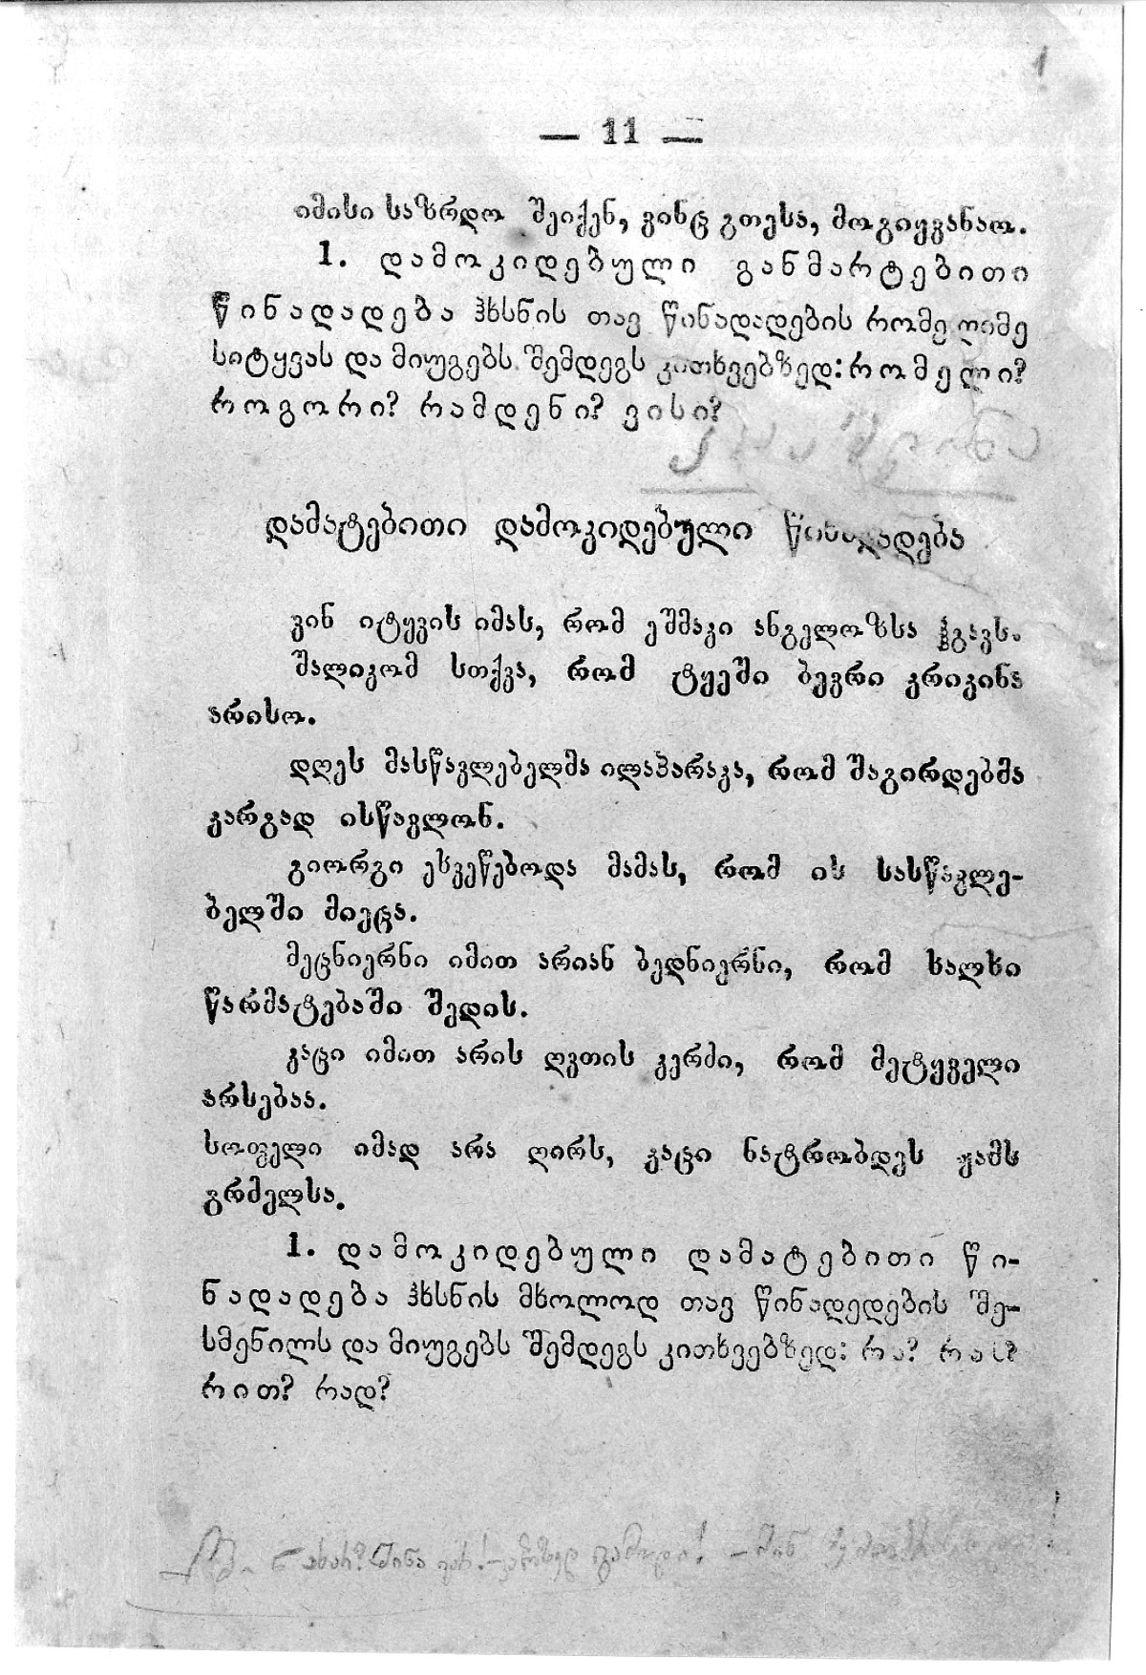 1
— 11 —
იმისი საზრდო შეიქენ, ვინც გთესა, მოგიყვანაო.
1. დამოკიდებული განმარტებითი
წინადადება ჰხსნის თავ წინადადების რომელიმე
სიტყვას და მიუგებს შემდეგს კითხვებზედ: რომელი?
როგორი? რამდენი? ვისი?
დამატებითი დამოკიდებული წინადადება
ვინ იტყვის იმას, რომ ეშმაკი ანგელოზსა ჰგავს.
შალიკომ სთქვა, რომ ტყეში ბევრი კრიკინა
არისო.
დღეს მასწავლებელმა ილაპარაკა, რომ შაგირდებმა
კარგად ისწავლონ.
გიორგი ეხვეწებოდა მამას, რომ ის სასწავლე-
ბელში მიეცა.
მეცნიერნი იმით არიან ბედნიერნი, რომ ხალხი
წარმატებაში შედის.
კაცი იმით არის ღვთის კერძი, რომ მეტყველი
არსებაა.
სოფელი იმად არა ღირს, კაცი ნატრობდეს ჟამს
გრძელსა.
1. დამოკიდებული დამატებითი წი-
ნადადება ჰხსნის მხოლოდ თავ წინადედების შე-
სმენილს და მიუგებს შემდეგს კითხვებზედ: რა? რას?
რით? რად?